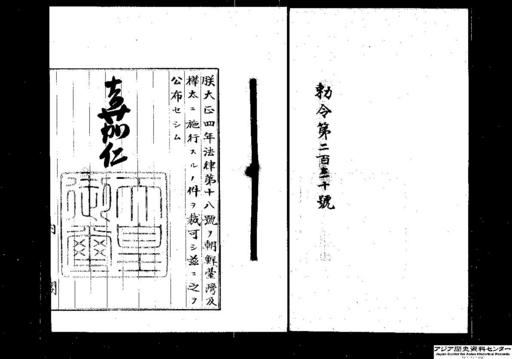 勅令第二百三十號
朕大正四年法律第十八號ヲ朝鮮臺灣及
樺太ニ施行スルノ件ヲ裁可シ茲ニ之ヲ
公布セシム
嘉仁
天皇
御璽
内閣
アジア歴史資料センター
Japan Center for Asian Historical Records